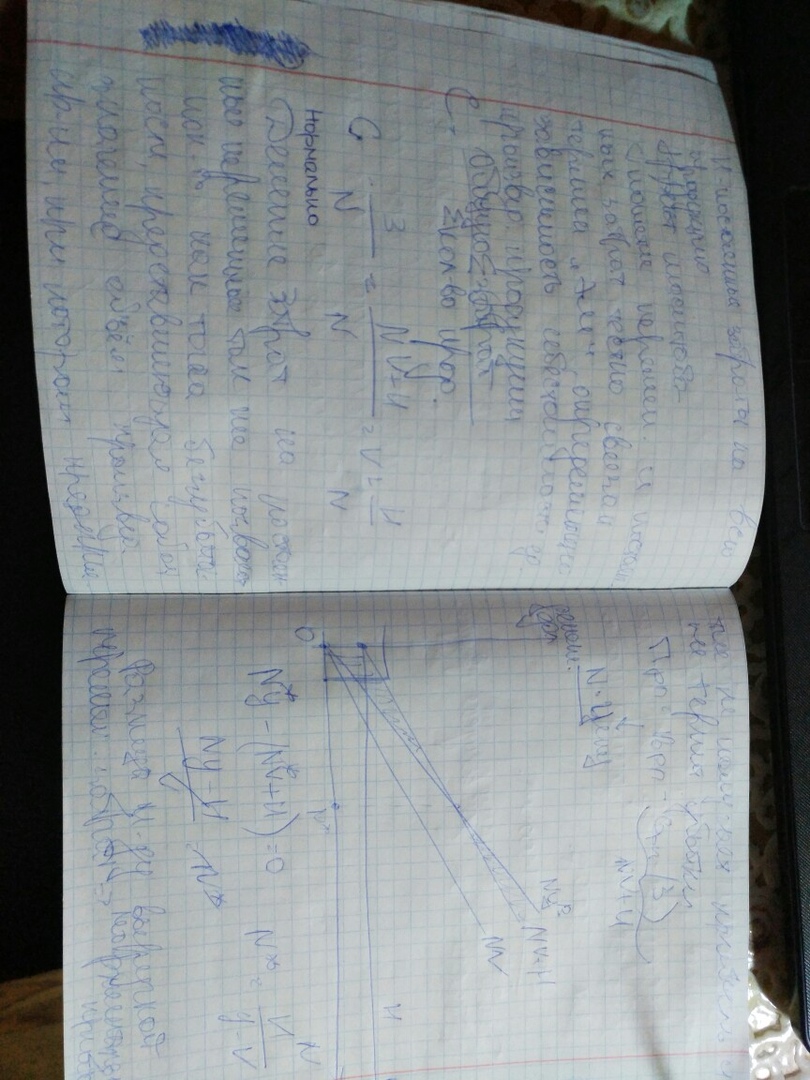 И-постоянные затраты на всю
продукцию
Эффект масштаба
перемен. и постоян
ных затрат тесно связан
термина „ЭМ“, определяющего
зависимость себестоимости ед.
произвед. продукции
C = Общую Σ затрат
Σ кол-во прод.
C = З/N = (NV+И)/N = V + И/N
нормально
Деление затрат на постоян
ные переменные так же
как точка безубыточ
ности, представляющая собой
значение объём произвед.
пр-ии, при котором предприя
тие не получает прибыль и
не терпит убытки
Пр = Выр - (З)
NV+И
N·Цену
Nу
NV+И
NV
И
0
N
N*у - (N*V+И) = 0
N* = И/(у-V)
(Nу-И)/V N*
Разница м-ду выручкой
перемен. затрат =>